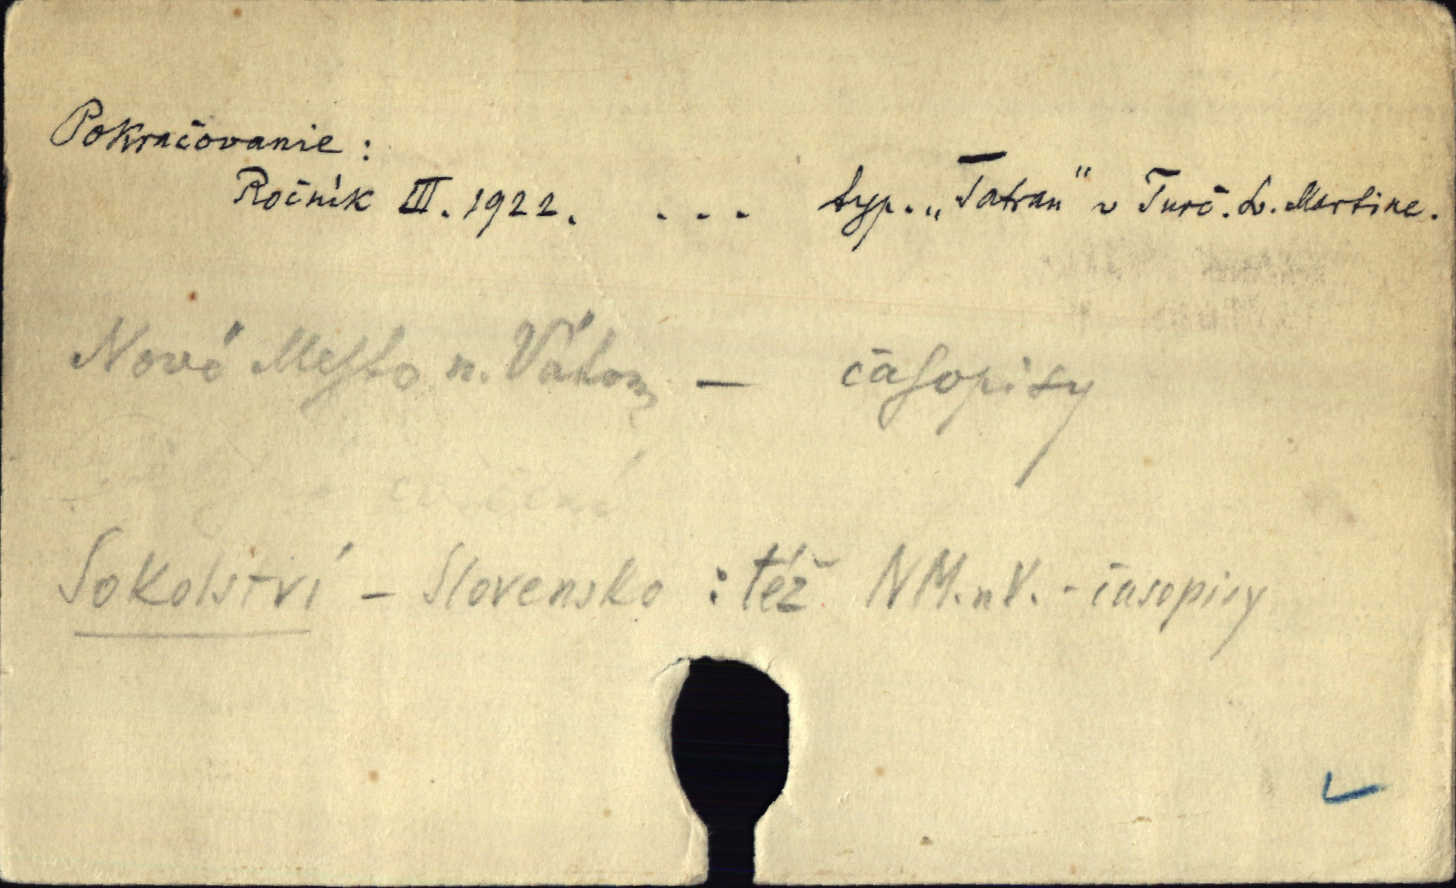 Pokračovanie :
Ročník III. 1922. . . . typ. „Tatran" v Turč. Sv. Martine.
Nové Mesto n. Váhom — časopisy
Sokolství – Slovensko : též NM. n V. - časopisy